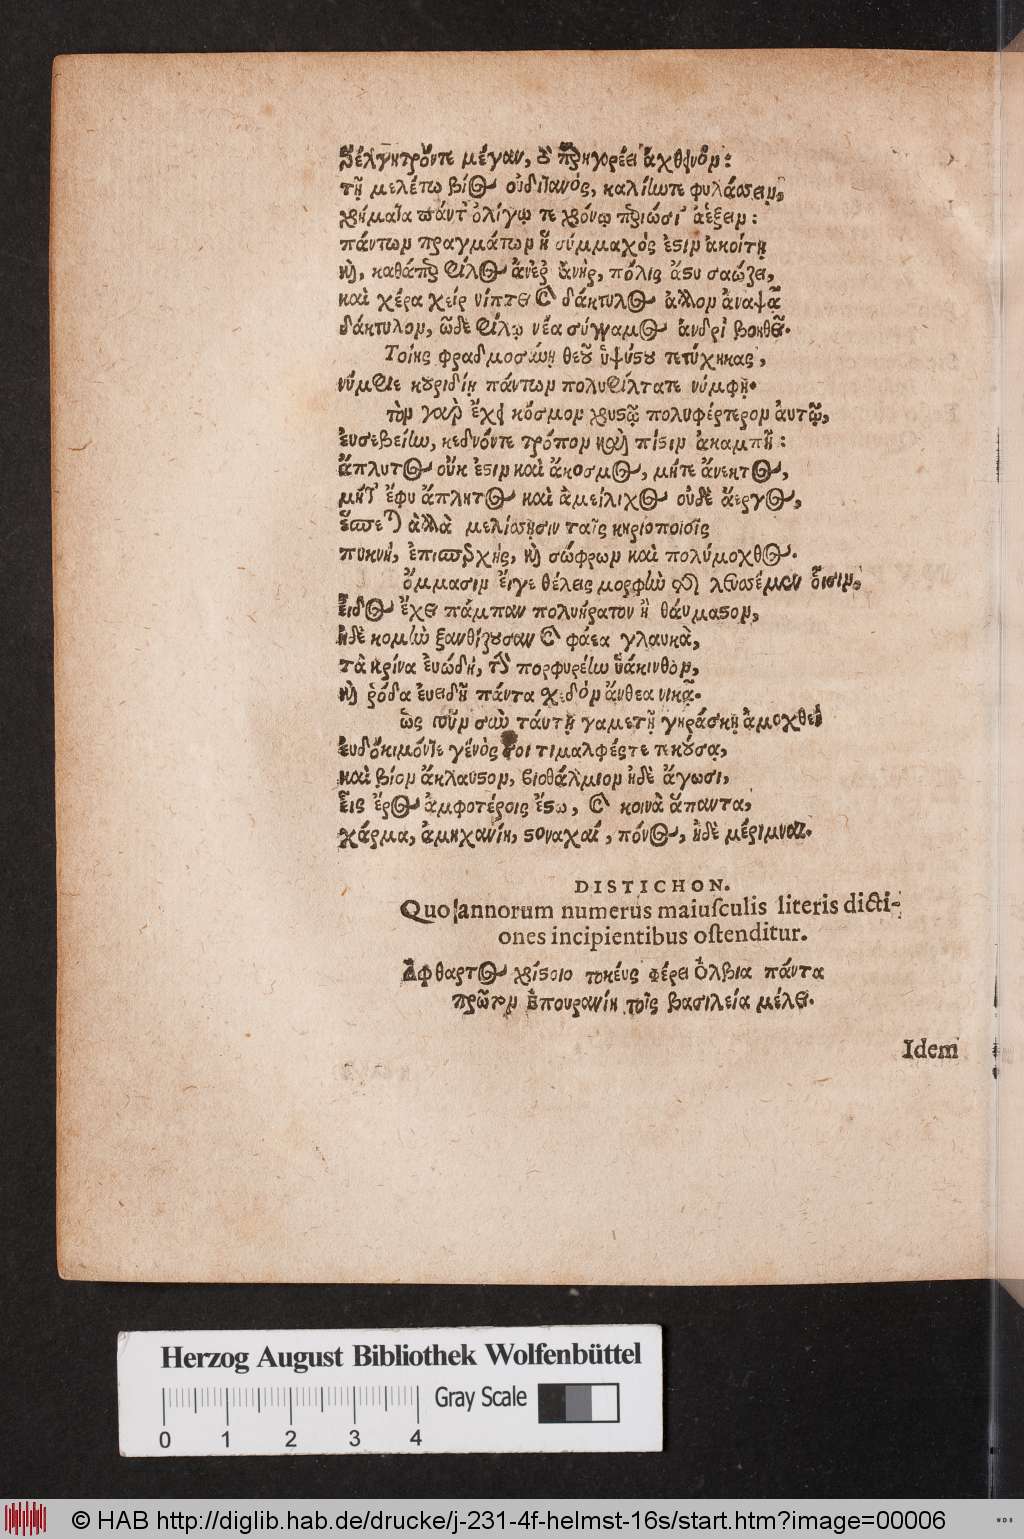 τῇ μελέτω βίος οὐδιπανὸς, καλίωτε φυλάσσειν,
χρήματα πάντ' ὀλίγῳ τε χρόνῳ
πάντων πραγμάτων ἢ σύμμαχός ἐστιν ἀκοίτη
καὶ, καθάπερ φίλος ἀνὴρ, πόλις ἄστυ σαώζει,
καὶ χέρα χείρ νίπτει καὶ δάκτυλος ἄλλον
δάκτυλον, ὧδε φίλῳ νέα σύγγαμος ἀνδρὶ βοηθεῖ.
Τοίης φραδμοσύνῃ θεοῦ ὑψίστου τετύχηκας,
νύμφιε κουριδίῃ πάντων πολυφίλτατε νύμφῃ.
τὸν γὰρ ἔχει κόσμον χρυσῷ πολυφέρτερον ἀυτῷ,
ἐυσεβείην, κεδνόντε τρόπον καὶ πίστιν ἀκαμπῆ:
ἄπλυτος οὔκ ἐστιν καὶ ἄκοσμος, μήτε ἄνεκτος,
μήτ' ἔφυ ἄπληστος καὶ ἀμείλιχος οὐδὲ ἄεργος,
ἀλλὰ μελίσσησιν ταῖς κηριοποιοῖς
πυκνὴ, καὶ σώφρων καὶ πολύμοχθος.
ὄμμασιν ἔιγε θέλεις μορφὼ
ἔιδος ἔχει πάμπαν πολυήρατον ἢ θάυμαστον,
ἠδὲ κομὼ ξανθίζουσαν καὶ φάεα γλαυκὰ,
τὰ κρίνα ἐυώδη, πορφυρέην ὑάκινθον,
καὶ ῥόδα ἐυειδῆ πάντα σχεδὸν ἄνθεα νικᾷ.
ὣς νῦν σὺν τάυτῃ γαμετῇ γηράσκῃ ἀμοχθεὶ
ἐυδόκιμόντε γένος σοι τιμαλφέστε τεκούσα,
καὶ βίον ἄκλαυστον, βιοθάλμιον ἠδὲ ἄγωσι,
ἔις ἔρος ἀμφοτέροις ἔστω, καὶ κοινὰ ἅπαντα,
χάρμα, ἀμηχανίη, στοναχαί, πόνος, ἠδὲ μέριμναι.
DISTICHON.
Quo annorum numerus maiusculis literis dicti-
ones incipientibus ostenditur.
Ἄφθαρτος χρίστοιο τοκέυς φέρει Ὄλβια πάντα
πρῶτον Ἐπουρανίη τοῖς βασιλεία μέλει.
Idem
Herzog August Bibliothek Wolfenbüttel
Gray Scale
0 1 2 3 4
© HAB http://diglib.hab.de/drucke/j-231-4f-helmst-16s/start.htm?image=00006